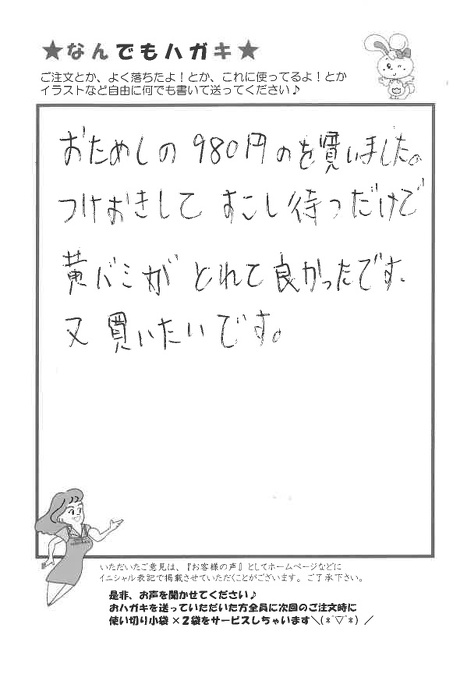 ★なんでもハガキ★
ご注文とか、よく落ちたよ！とか、これに使ってるよ！とか
イラストなど自由に何でも書いて送ってください♪
おためしの980円のを買いました。
つけおきして すこし待つだけで
黄バミが とれて良かったです、
又 買いたいです。
いただいたご意見は、『お客様の声』としてホームページなどに
イニシャル表記で掲載させていただくことがございます。ご了承下さい。
是非、お声を聞かせてください♪
おハガキを送っていただいた方全員に次回のご注文時に
使い切り小袋×2袋をサービスしちゃいます＼(*^▽^*)／